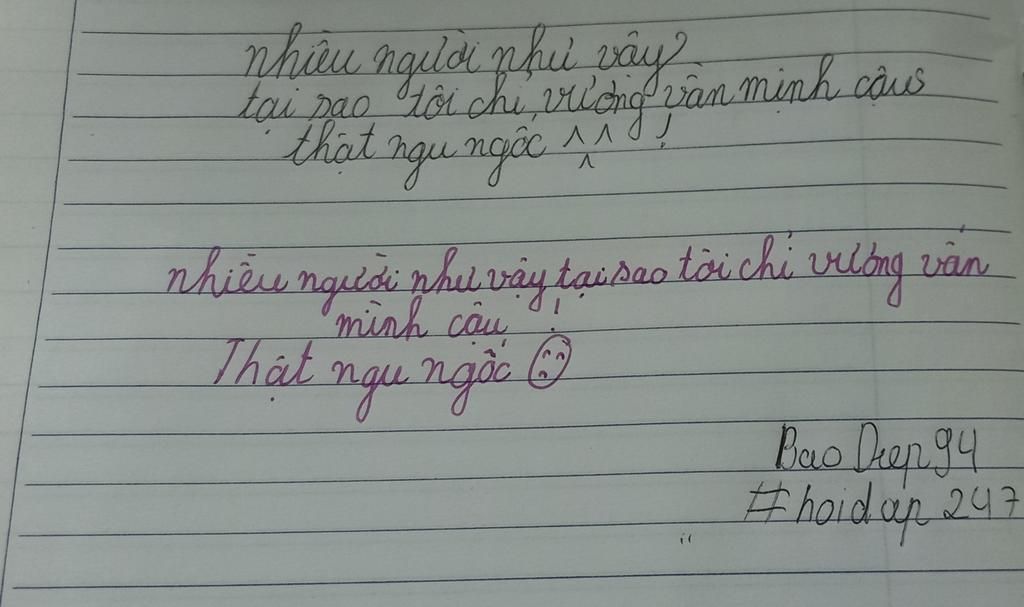 nhiều người như vậy?
tại sao tôi chỉ vương vấn mình cậu
thật ngu ngốc ^^ !
^
nhiều người như vậy tại sao tôi chỉ vương vấn
mình cậu !
Thật ngu ngốc
Bao Diep 94
#hoidap 247